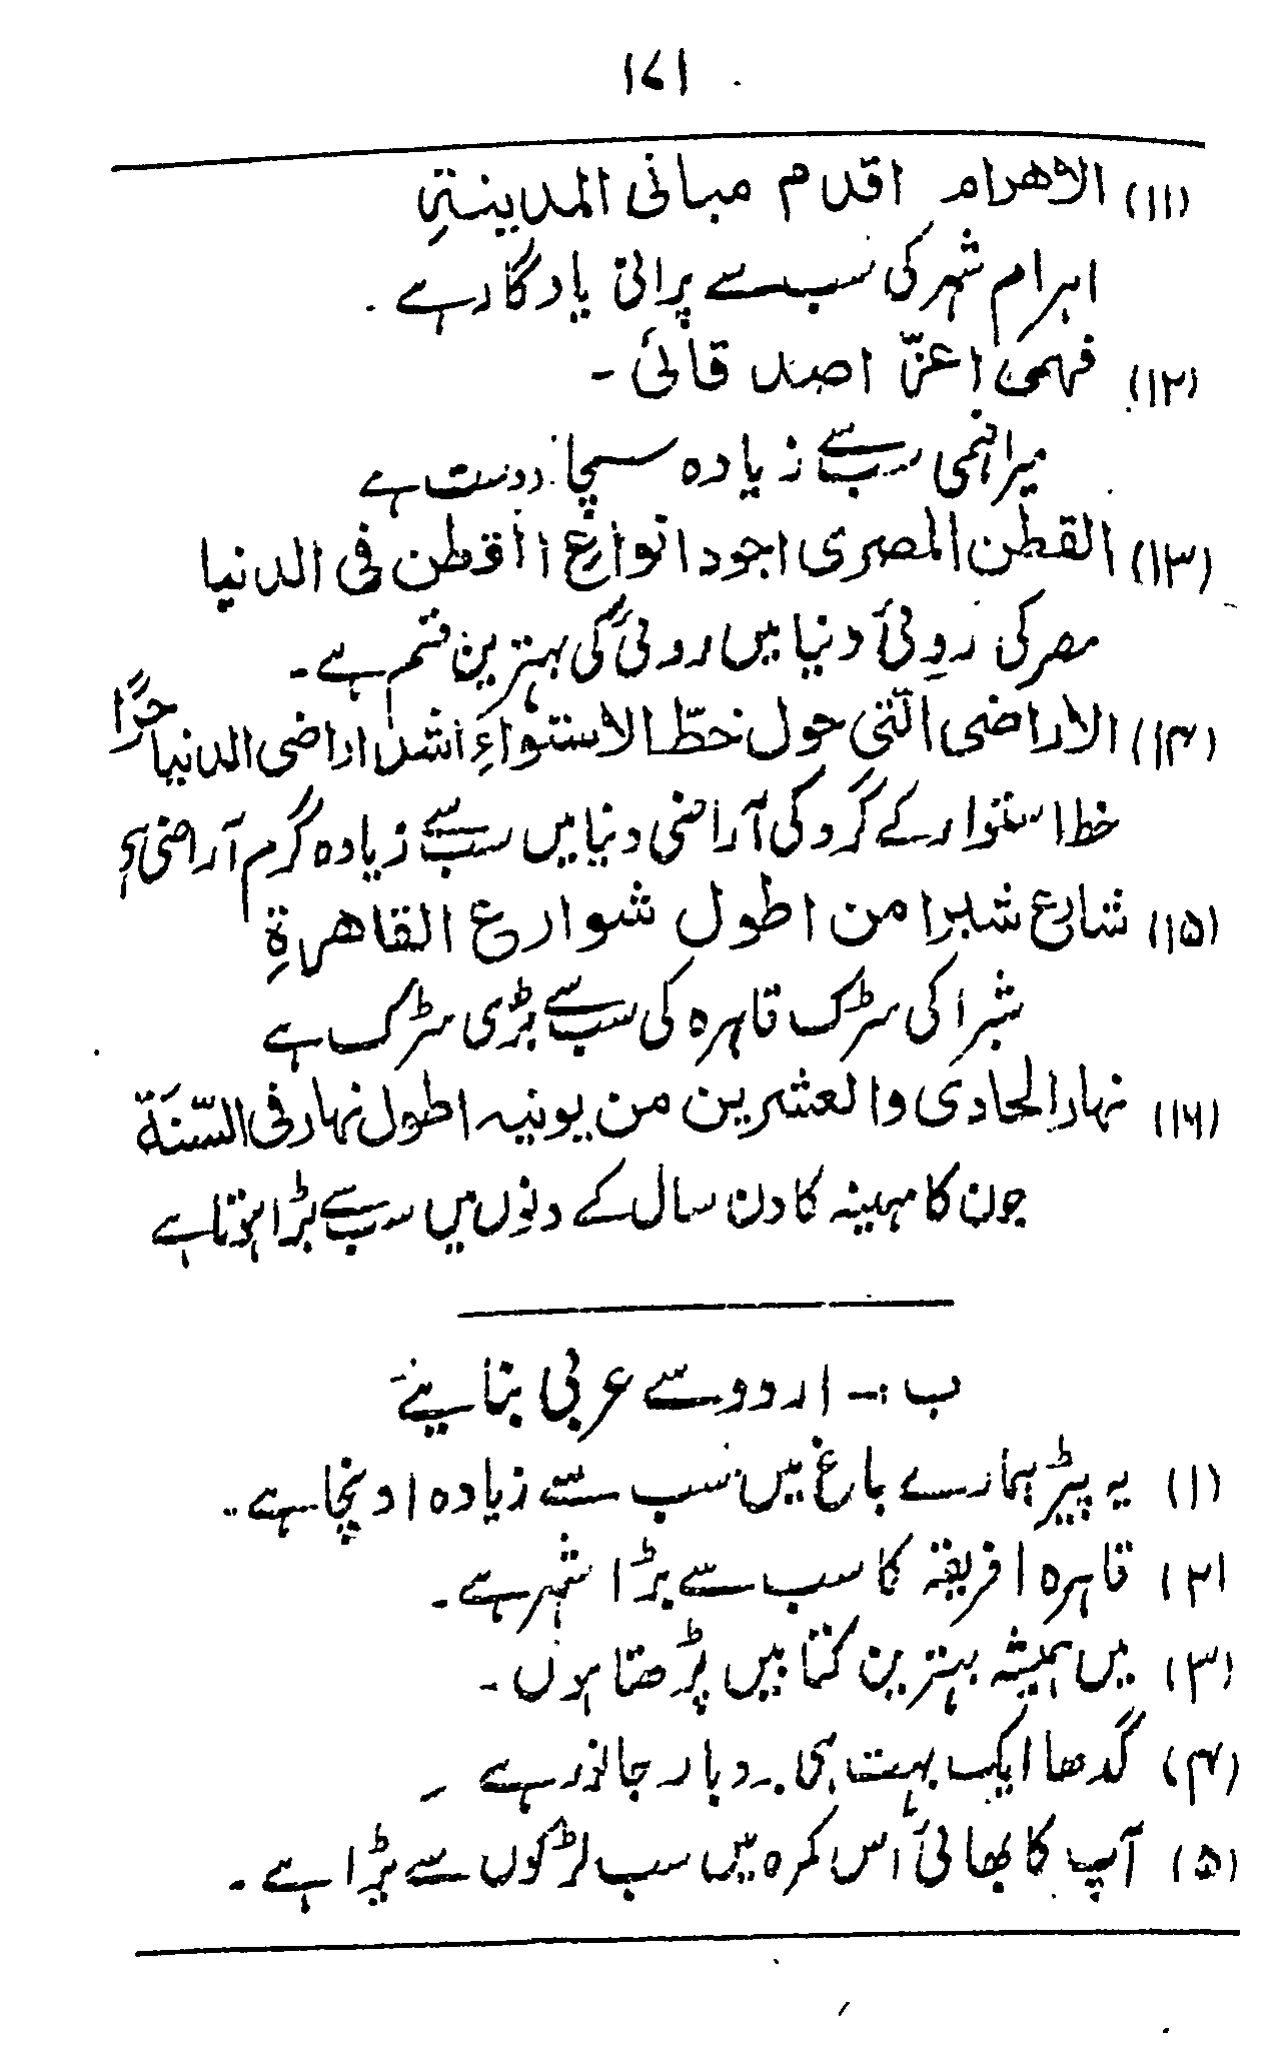 ۱۷۱
(۱۱) الاھرام اقدم مبانی المدینۃِ
اہرام شہر کی سب سے پرانی یادگار ہے۔
(۱۲) فہمی اعزّ اصدقائی۔
میرا فہمی سب سے زیادہ سچا دوست ہے
(۱۳) القطن المصری اجود انواع القطن فی الدنیا
مصر کی روئی دنیا میں روئی کی بہترین قسم ہے۔
(۱۴) الاراضی الّتی حول خطّ الاستواءِ اشد اراضی الدنیا حرًّا
خط استوار کے گرد کی آراضی دنیا میں سب سے زیادہ گرم آراضی ہے
(۱۵) شارع شبرا من اطول شوارع القاھرۃِ
شبرا کی سڑک قاہرہ کی سب سے بڑی سڑک ہے
(۱۶) نہار الحادی والعشرین من یونیہ اطول نہار فی السّنَۃ
جون کا مہینہ کا دن سال کے دنوں میں سب سے بڑا ہوتا ہے
ب :۔ اردو سے عربی بنایئے
(۱) یہ پیڑ ہمارے باغ میں سب سے زیادہ اونچا ہے۔
(۲) قاہرہ افریقہ کا سب سے بڑا شہر ہے۔
(۳) میں ہمیشہ بہترین کتابیں پڑھتا ہوں۔
(۴) گدھا ایک بہت ہی بردبار جانور ہے ۔
(۵) آپ کا بھائی اُس کمرہ میں سب لڑکوں سے بڑا ہے۔